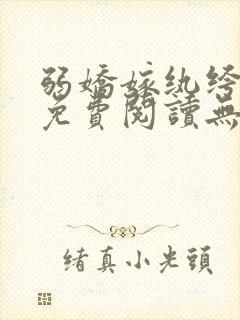 弱嬌嫁紈绔
免費閱讀無
緒真小光頭